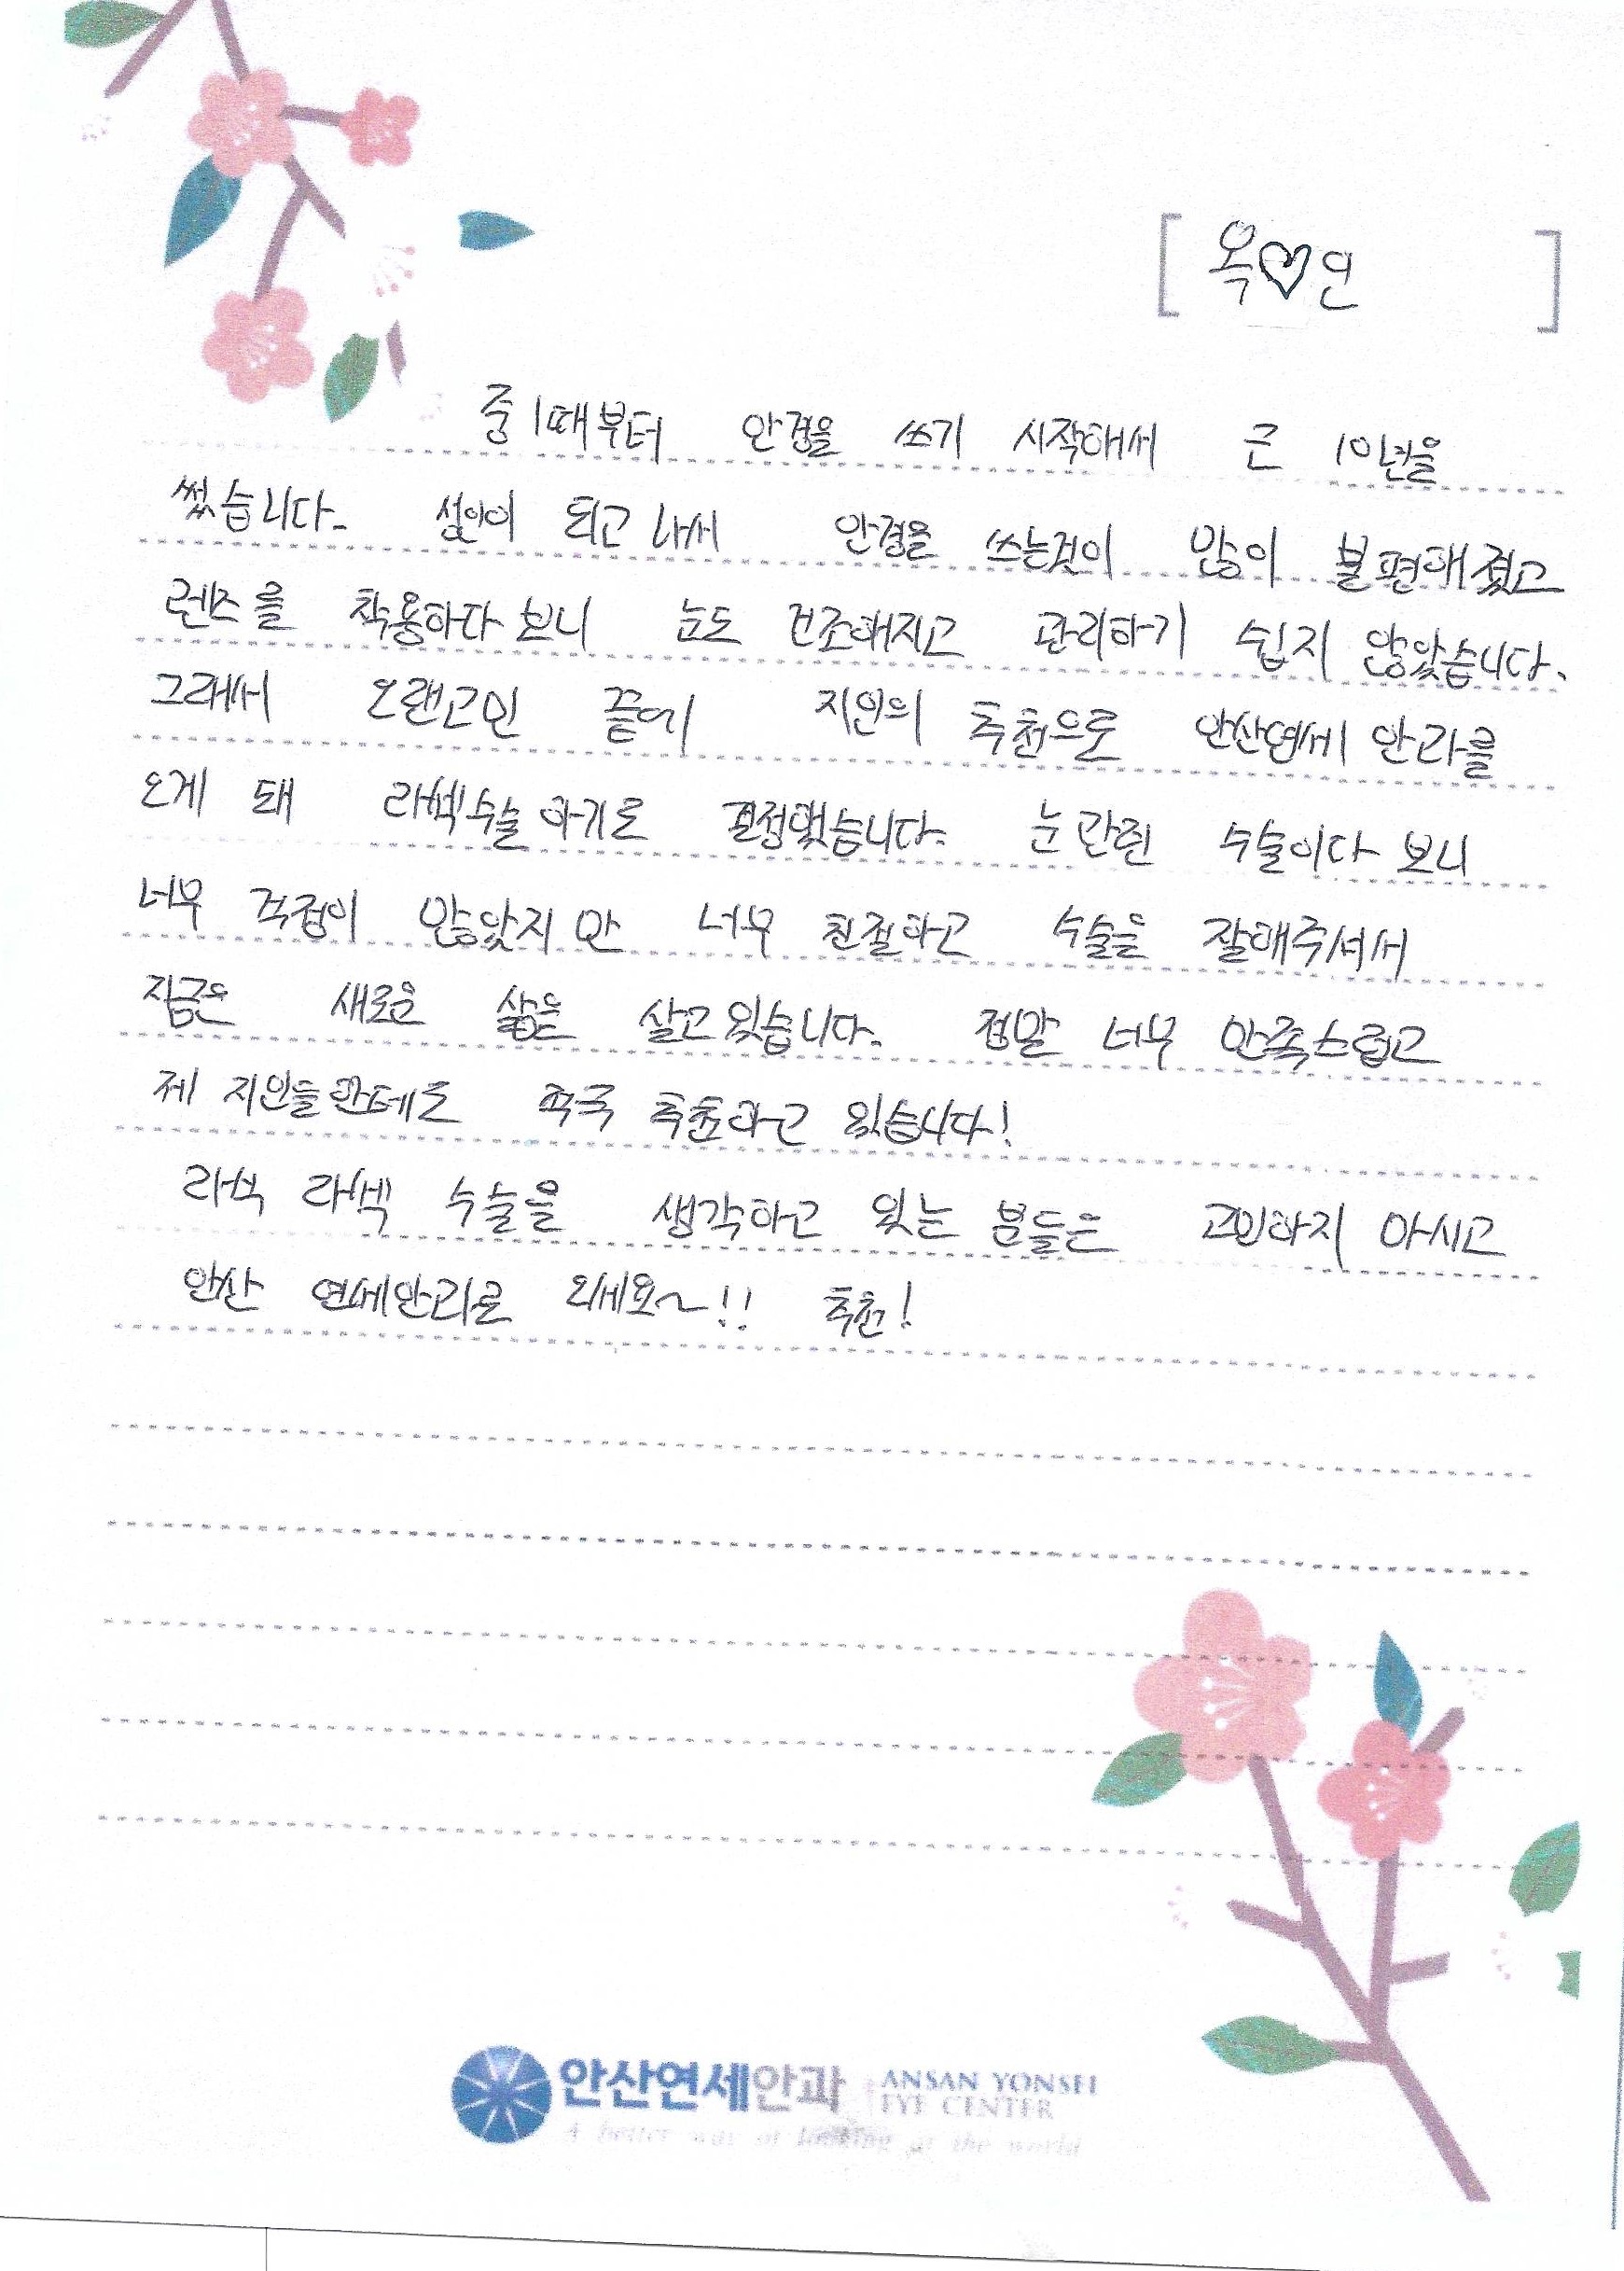 [ 옥♡인 ]
중1때부터 안경을 쓰기 시작해서 근 10년을
썼습니다. 성인이 되고 나서 안경을 쓰는것이 많이 불편해졌고
렌즈를 착용하다 보니 눈도 건조해지고 관리하기 쉽지 않았습니다.
그래서 오랜고민 끝에 지인의 추천으로 안산연세 안과를
오게 돼 라섹수술 하기로 결정했습니다. 눈 관련 수술이다 보니
너무 걱정이 많았지만 너무 친절하고 수술을 잘해주셔서
지금은 새로운 삶을 살고있습니다. 정말 너무 만족스럽고
제 지인들한테도 적극 추천하고 있습니다!
라식 라섹 수술을 생각하고 있는 분들은 고민하지 마시고
안산 연세안과로 오세요~!! 추천!
안산연세안과 ANSAN YONSEI
EYE CENTER
A better way of looking at the world